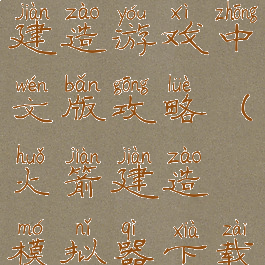 jiàn zào yóu xì zhōng
建造游戏中
wén bǎn gōng lüè
文版攻略（
huǒ jiàn jiàn zào
火箭建造
mó nǐ qì xià zài
模拟器下载